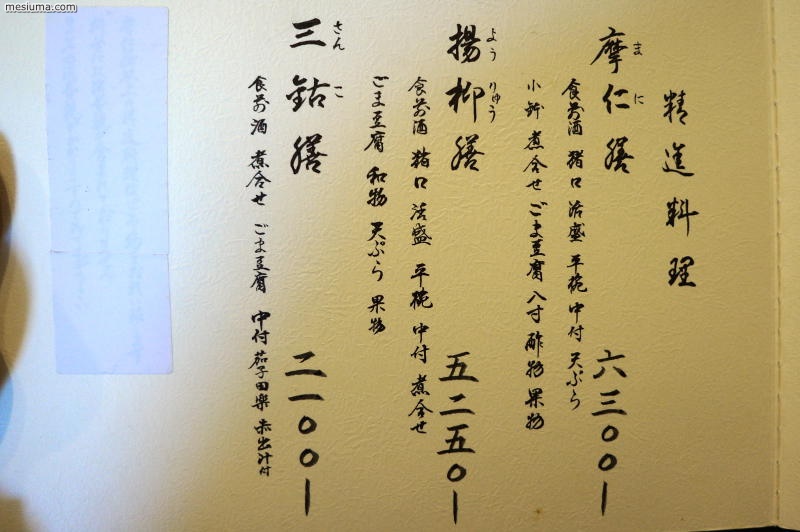 mesiuma.com
精進料理
摩仁膳 六三〇〇ー
まに
食前酒 猪口 活盛 平椀 中付 天ぷら
小鉢 煮合せ ごま豆腐 八寸 酢物 果物
揚柳膳 五二五〇ー
ようりゅう
食前酒 猪口 活盛 平椀 中付 煮合せ
ごま豆腐 和物 天ぷら 果物
三鈷膳 二一〇〇ー
さんこ
食前酒 煮合せ ごま豆腐 中付 茄子田楽 赤出汁付